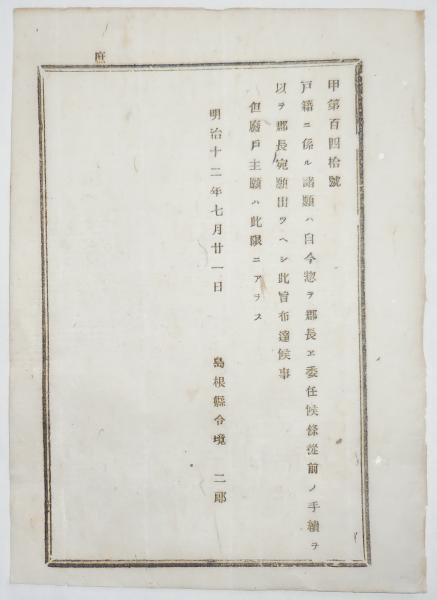 甲第百四拾號
戸籍ニ係ル諸願ハ自今惣テ郡長ヱ委任候條從前ノ手續ヲ
以テ郡長宛願出ツヘシ此旨布達候事
但廢戸主願ハ此限ニアラス
明治十二年七月廿一日
島根縣令境 二郎
庶